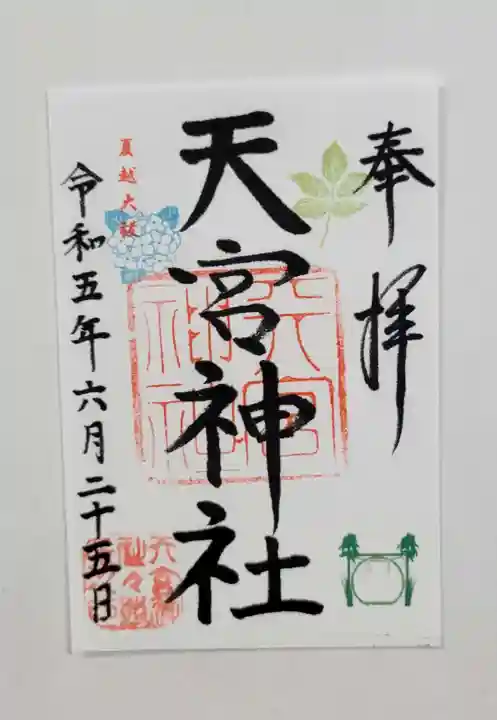 奉拝
天宮神社
夏越大祓
令和五年六月二十五日
天宮
神社